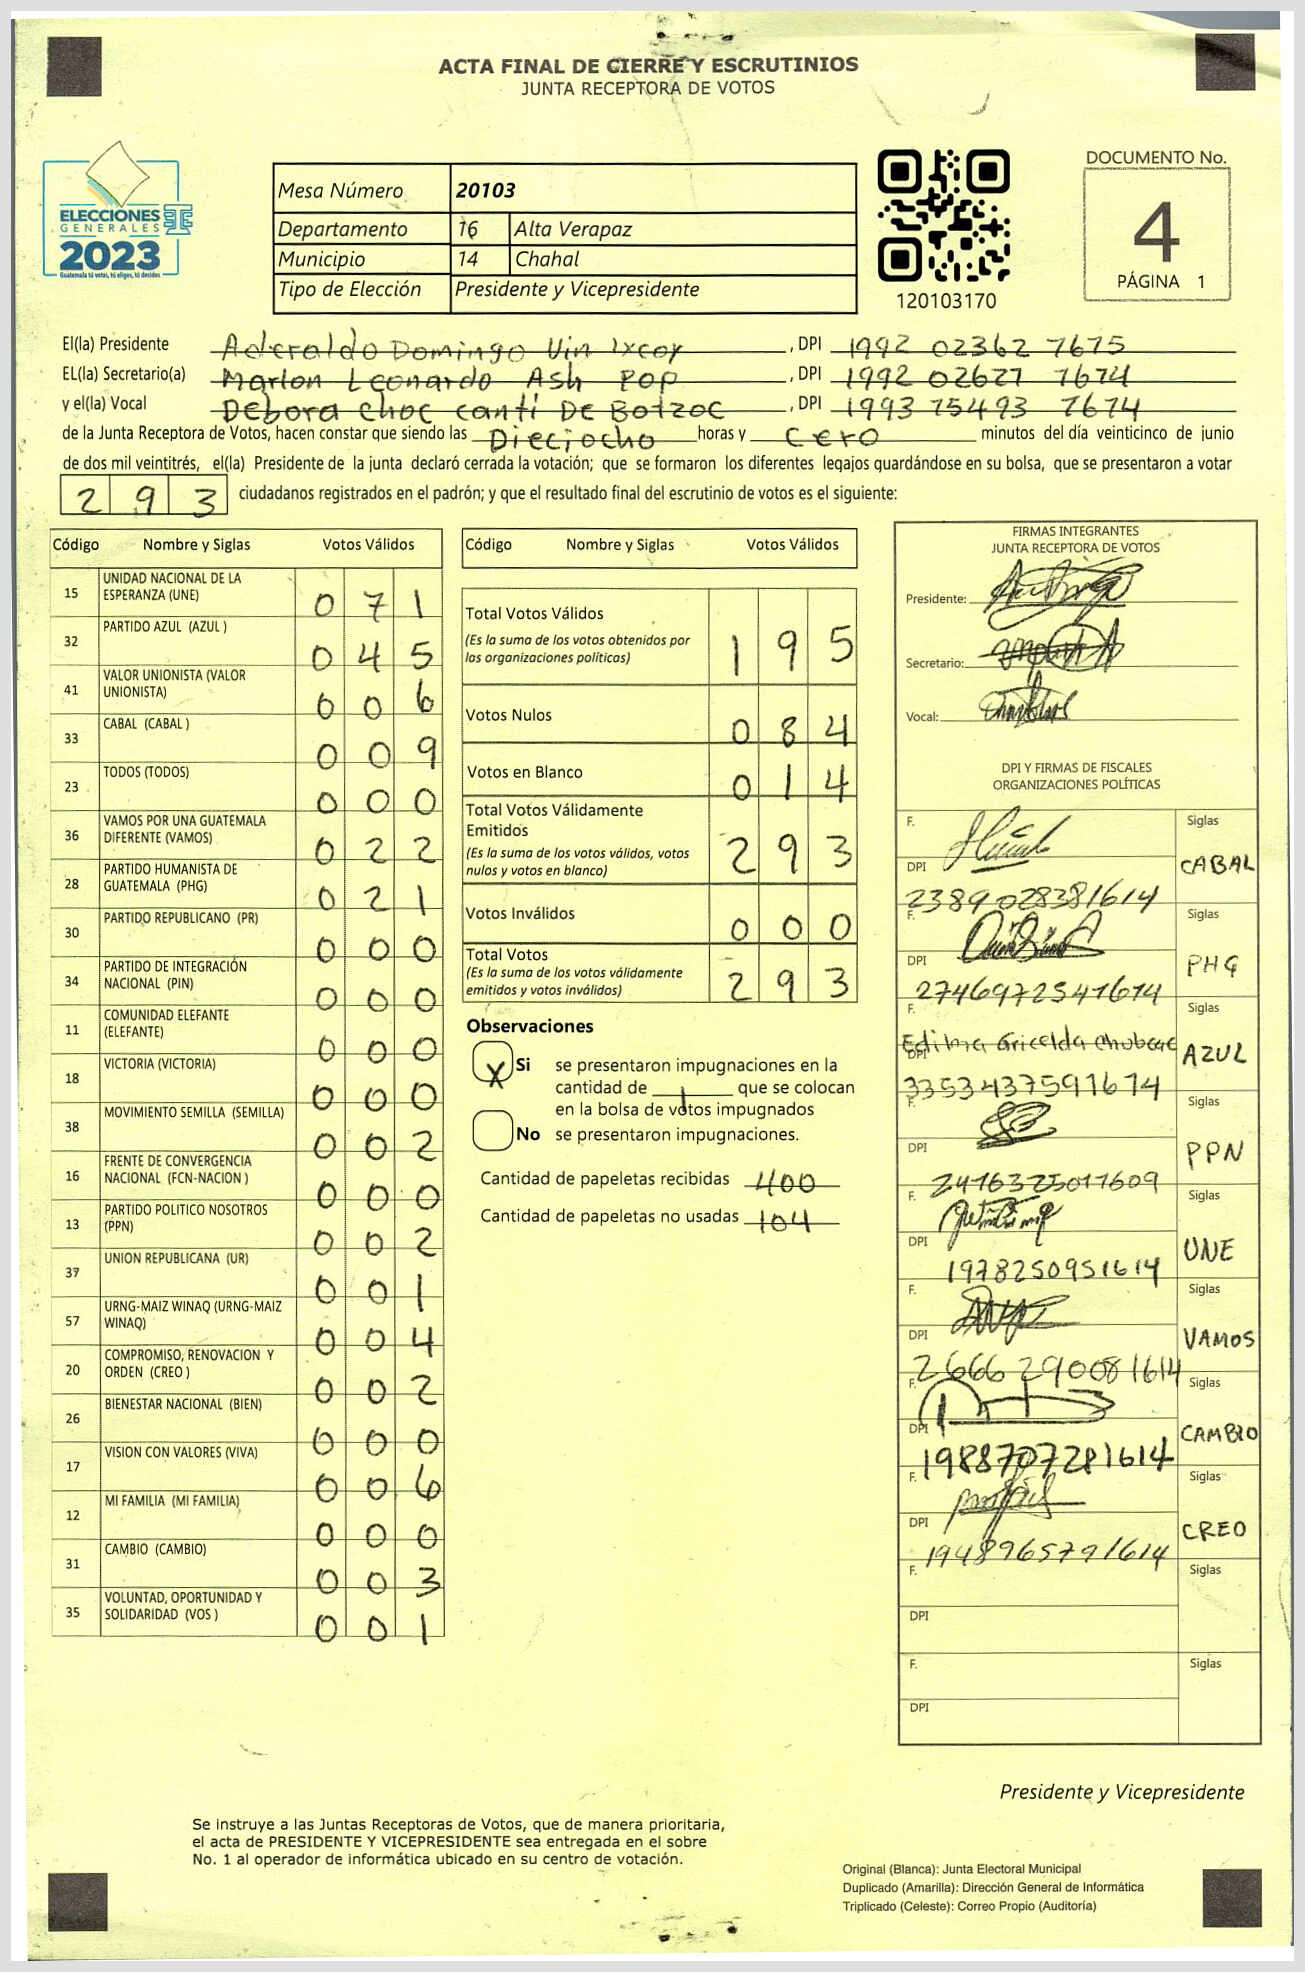 ACTA FINAL DE CIERRE Y ESCRUTINIOS
JUNTA RECEPTORA DE VOTOS
ELECCIONES
GENERALES
2023
Guatemala tú votas, tú eliges, tú decides
Mesa Número 20103
Departamento 16 Alta Verapaz
Municipio 14 Chahal
Tipo de Elección Presidente y Vicepresidente
120103170
DOCUMENTO No.
4
PÁGINA 1
El(la) Presidente Aderaldo Domingo Uin Ixcoy , DPI 1992 02362 7675
EL(la) Secretario(a) Marlon Leonardo Ash Pop , DPI 1992 02627 7674
y el(la) Vocal Debora Choc Cantí De Botzoc , DPI 1993 75493 7674
de la Junta Receptora de Votos, hacen constar que siendo las Dieciocho horas y Cero minutos del día veinticinco de junio
de dos mil veintitrés, el(la) Presidente de la junta declaró cerrada la votación; que se formaron los diferentes legajos guardándose en su bolsa, que se presentaron a votar
293 ciudadanos registrados en el padrón; y que el resultado final del escrutinio de votos es el siguiente:
Código Nombre y Siglas Votos Válidos
15 UNIDAD NACIONAL DE LA ESPERANZA (UNE) 071
32 PARTIDO AZUL (AZUL ) 045
41 VALOR UNIONISTA (VALOR UNIONISTA) 006
33 CABAL (CABAL ) 009
23 TODOS (TODOS) 000
36 VAMOS POR UNA GUATEMALA DIFERENTE (VAMOS) 022
28 PARTIDO HUMANISTA DE GUATEMALA (PHG) 021
30 PARTIDO REPUBLICANO (PR) 000
34 PARTIDO DE INTEGRACIÓN NACIONAL (PIN) 000
11 COMUNIDAD ELEFANTE (ELEFANTE) 000
18 VICTORIA (VICTORIA) 000
38 MOVIMIENTO SEMILLA (SEMILLA) 002
16 FRENTE DE CONVERGENCIA NACIONAL (FCN-NACION ) 000
13 PARTIDO POLITICO NOSOTROS (PPN) 002
37 UNION REPUBLICANA (UR) 001
57 URNG-MAIZ WINAQ (URNG-MAIZ WINAQ) 004
20 COMPROMISO, RENOVACION Y ORDEN (CREO ) 002
26 BIENESTAR NACIONAL (BIEN) 000
17 VISION CON VALORES (VIVA) 006
12 MI FAMILIA (MI FAMILIA) 000
31 CAMBIO (CAMBIO) 003
35 VOLUNTAD, OPORTUNIDAD Y SOLIDARIDAD (VOS ) 001
Código Nombre y Siglas Votos Válidos
Total Votos Válidos 195
(Es la suma de los votos obtenidos por
las organizaciones políticas)
Votos Nulos 084
Votos en Blanco 014
Total Votos Válidamente
Emitidos 293
(Es la suma de los votos válidos, votos
nulos y votos en blanco)
Votos Inválidos 000
Total Votos 293
(Es la suma de los votos válidamente
emitidos y votos inválidos)
Observaciones
X Si se presentaron impugnaciones en la
cantidad de 1 que se colocan
en la bolsa de votos impugnados
No se presentaron impugnaciones.
Cantidad de papeletas recibidas 400
Cantidad de papeletas no usadas 104
FIRMAS INTEGRANTES
JUNTA RECEPTORA DE VOTOS
Presidente:
Secretario:
Vocal:
DPI Y FIRMAS DE FISCALES
ORGANIZACIONES POLÍTICAS
F. Siglas
DPI CABAL
2389028381614
F. Siglas
DPI PHG
2746972541614
F. Siglas
Edilma Gricelda
DPI AZUL
3353437591614
F. Siglas
DPI PPN
2416325011609
F. Siglas
DPI UNE
1978250951614
F. Siglas
DPI VAMOS
2666290081614
F. Siglas
DPI CAMBIO
1988707281614
F. Siglas
DPI CREO
1948965791614
F. Siglas
DPI
F. Siglas
DPI
Presidente y Vicepresidente
Se instruye a las Juntas Receptoras de Votos, que de manera prioritaria,
el acta de PRESIDENTE Y VICEPRESIDENTE sea entregada en el sobre
No. 1 al operador de informática ubicado en su centro de votación.
Original (Blanca): Junta Electoral Municipal
Duplicado (Amarilla): Dirección General de Informática
Triplicado (Celeste): Correo Propio (Auditoría)